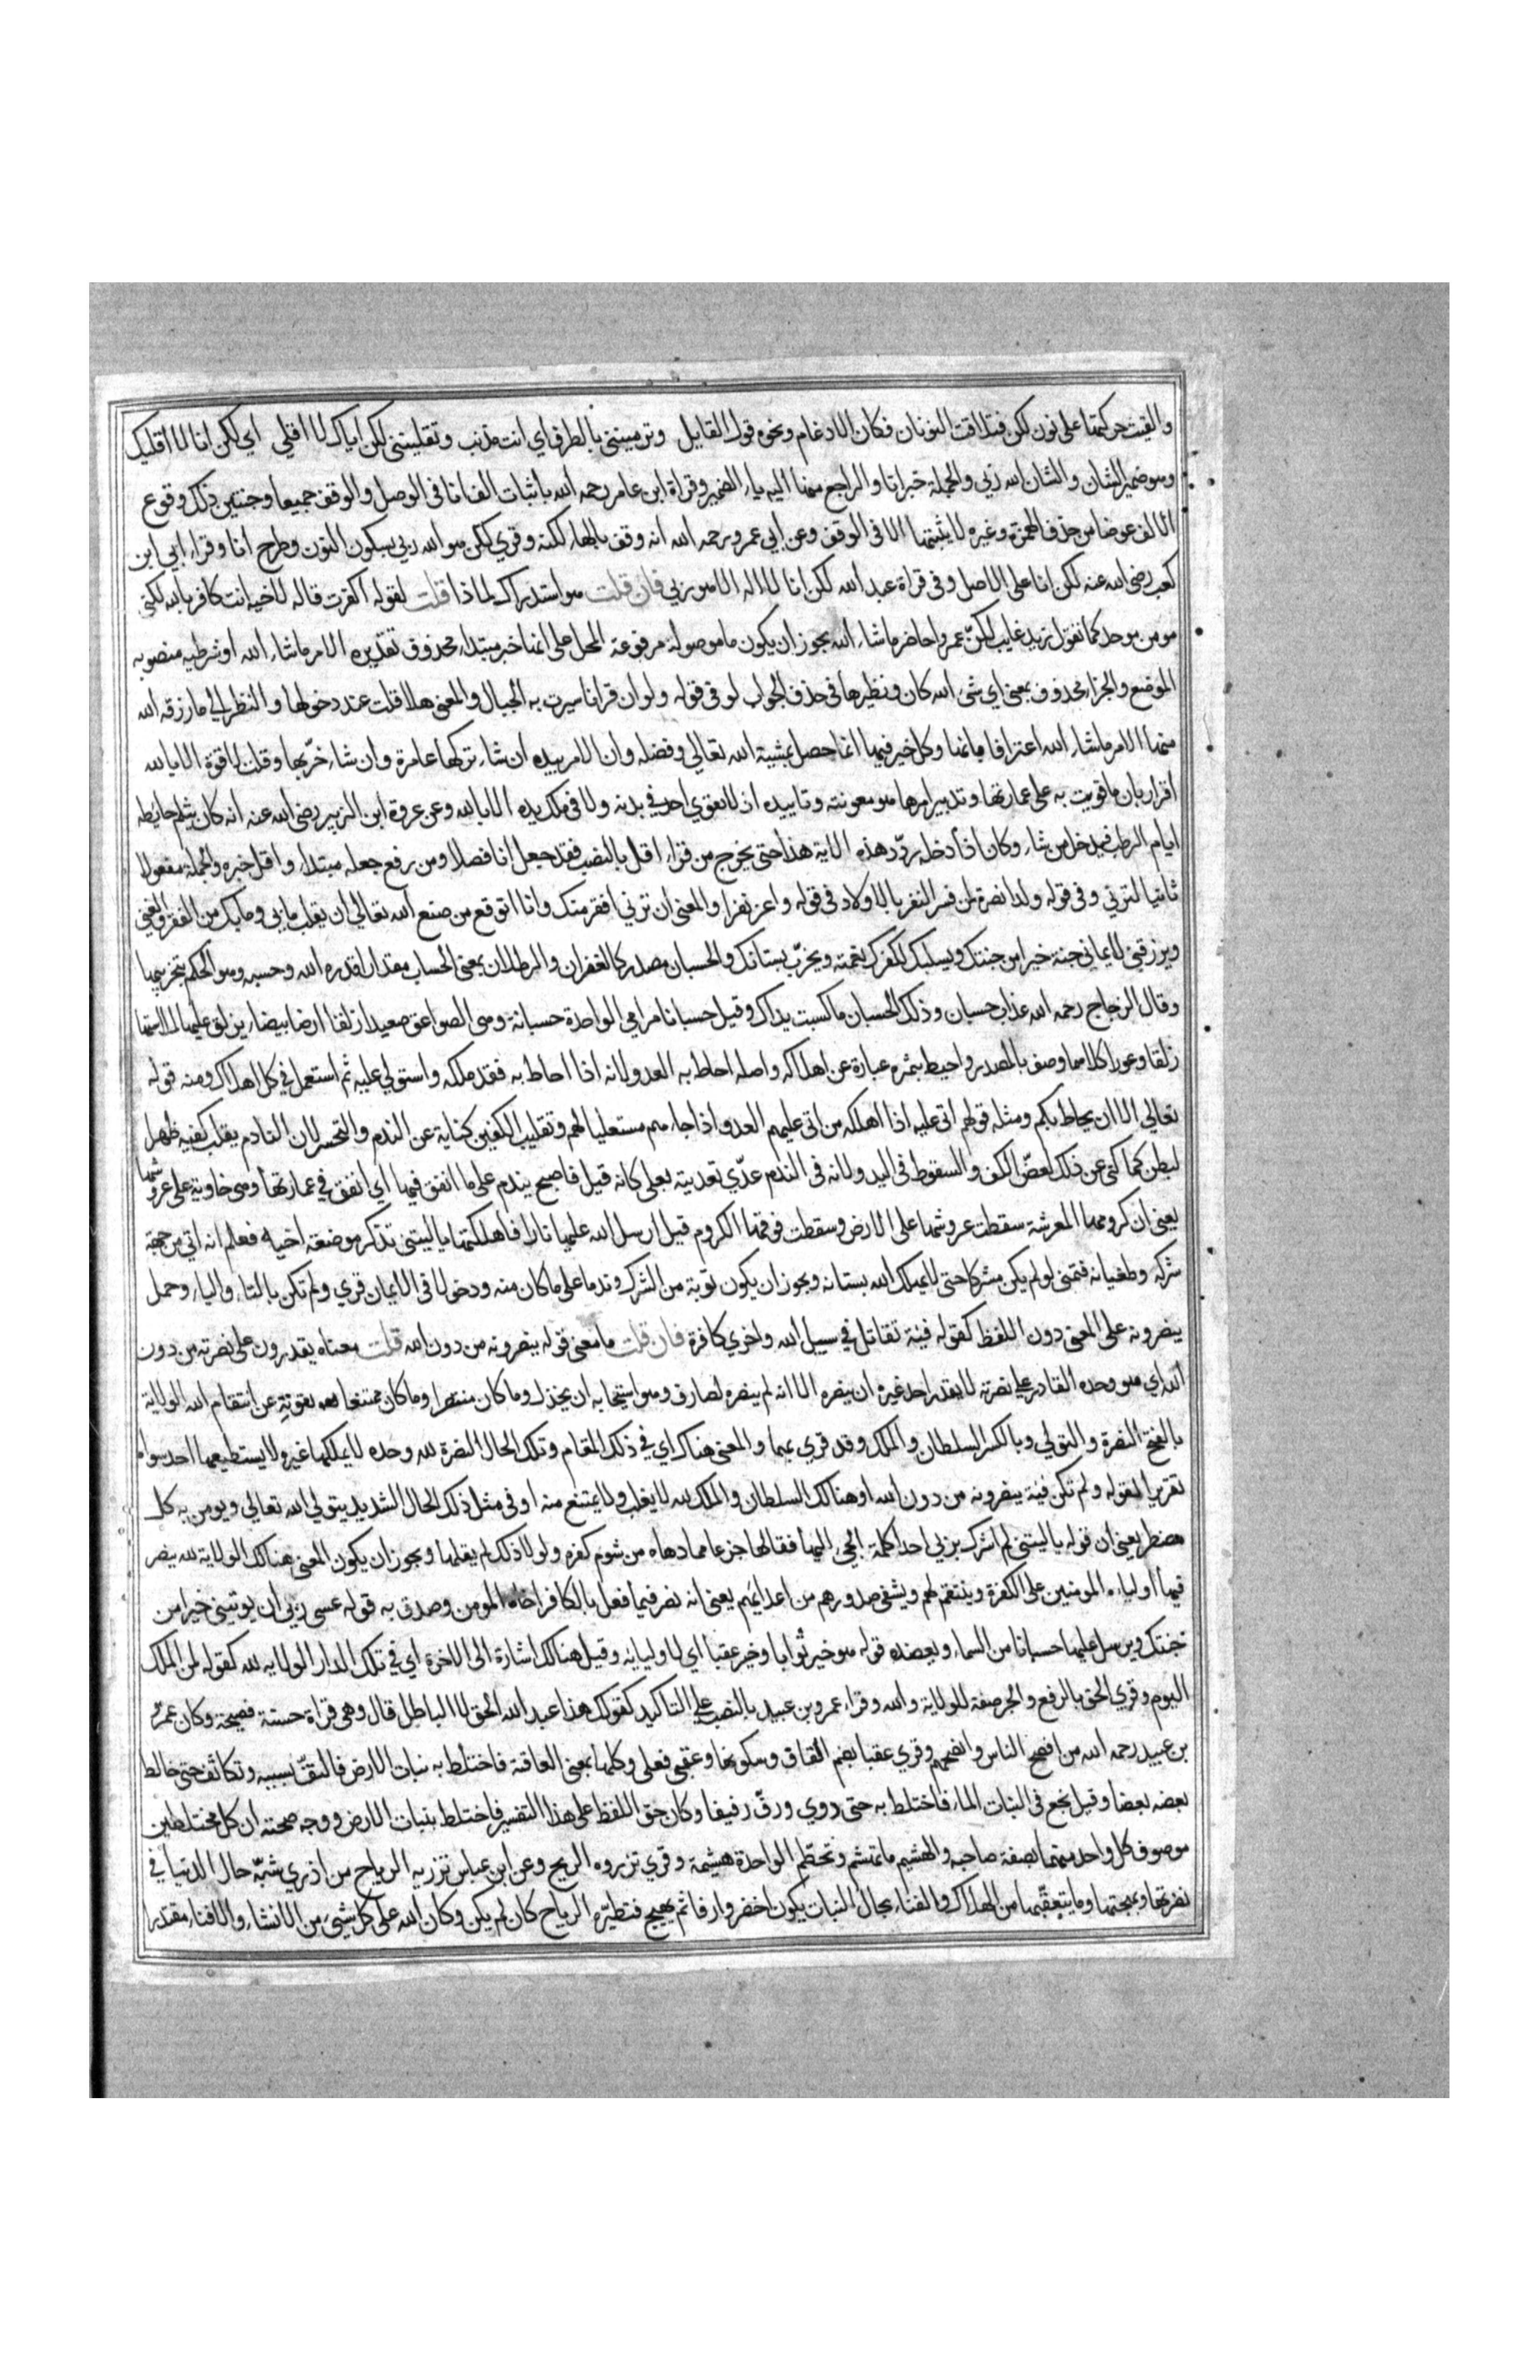 والقيت حركتها على نون لكن فتلاقت النونان فكان الادغام ونحوه قول القايل وترمينني بالطرف اي انت مذنب وتقلينني لكن اياك لا اقلي اي لكن انا لا اقليك
وهو ضمير الشان والشان الله ربي والجملة خبر انا والراجع منها اليه ياء الضمير وقراة ابن عامر رحمه الله باثبات الف انا في الوصل والوقف جميعا وحسن ذلك وقوع
الالف عوضا من حذف الهمزة وغيره لا يثبتها الا في الوقف وعن ابي عمرو رحمه الله انه وقف بالهاء لكنه وقري لكن هو الله ربي بسكون النون وطرح انا وقراء ابي ابن
كعب رضي الله عنه لكن انا على الاصل وفي قراة عبد الله لكن انا لا اله الا هو ربي فان قلت هو استدراك لماذا قلت لقوله اكفرت قاله لاخيه انت كافر بالله لكني
مومن موحد كما تقول زيد غايب لكنّ عمرا حاضر ما شاء الله يجوز ان يكون ما موصولة مرفوعة المحل على انها خبر مبتداء محذوف تقديره الامر ما شاء الله او شرطيه منصوبه
الموضع والجزاء محذوف بمعنى اي شيء الله كان ونظيرها في حذف الجواب لو في قوله ولو ان قرانا سيرت به الجبال والمعنى هلا قلت عند دخولها والنظر الي ما رزقه الله
منها الامر ما شاء الله اعترافا بانها وكل خير فيها انما حصل بمشية الله تعالي وفضله وان الامر بيده ان شاء تركها عامرة وان شاء خرّبها وقلت لا قوة الا بالله
اقرار بان ما قويت به على عمارتها وتدبير امرها هو معونته وتاييده اذ لا يقوي احد في بدنه ولا في ملك يده الا بالله وعن عروة ابن الزبير رضي الله عنه انه كان يثلم حايطه
ايام الرطب فيدخل من شاء وكان اذا دخله ردّد هذه الاية هذا حتى يخرج من قراء اقل بالنصب فقد جعل انا فصلا ومن رفع جعله مبتداء واقل خبره والجملة مفعولا
ثانيا لترني وفي قوله وولدا نصرة لمن فسر النفر بالاولاد في قوله واعز نفرا والمعنى ان ترني افقر منك وانا اتوقع من صنع الله تعالي ان يقلب ما بي وما بك من الفقر والغنى
ويرزقني لايماني جنة خيرا من جنتك ويسلبك لكفرك نعمته ويخرّب بستانك والحسبان مصدر كالغفران والبطلان بمعنى الحساب مقدارا قدره الله وحسبه وهو الحكم بتخريبها
وقال الزجاج رحمه الله عذاب حسبان وذلك الحسبان ما كسبت يداك وقيل حسبانا مرامي الواحدة حسبانة وهي الصواعق صعيدا زلقا ارضا بيضاء يزلق عليها لملاستها
زلقا وغورا كلاهما وصف بالمصدر واحيط بثمره عبارة عن اهلاكه واصله احاط به العدو لانه اذا احاط به فقد ملكه واستولي عليه ثم استعمل في كل اهلاك ومنه قوله
تعالي الا ان يحاط بكم ومثله قولهم اتى عليه اذا اهلكه من اتى عليهم العدو اذا جاءهم مستعليا لهم وتقليب الكفين كناية عن الندم والتحسر لان النادم يقلب كفيه ظهرا
لبطن كما كني عن ذلك بعض الكف والسقوط في اليد ولانه في الندم عدّي تعديته بعلى كانه قيل فاصبح يندم على ما انفق فيها اي انفق في عمارتها وهي خاوية على عروشها
يعني ان كرومها المعرشة سقطت عروشها على الارض وسقطت فوقها الكروم قيل ارسل الله عليها نارا فاهلكتها يا ليتني تذكر موضعة اخيه فعلم انه اتي من جهة
شركه وطغيانه فتمنى لو لم يكن مشركا حتى لا يهلك الله بستانه ويجوز ان يكون توبة من الشرك وندما على ما كان منه ودخولا في الايمان قري ولم تكن بالتاء والياء وحمل
ينصرونه على المعنى دون اللفظ كقوله فية تقاتل في سبيل الله واخري كافرة فان قلت ما معنى قوله ينصرونه من دون الله قلت معناه يقدرون على نصرته من دون
الله اي هو وحده القادر على نصرته لا يقدر احد غيره ان ينصره الا انه لم ينصره لصارف وهو استيجابه ان يخذل وما كان منتصرا وما كان ممتنعا بقوته عن انتقام الله الولاية
بالفتح النصرة والتولي وبالكسر السلطان والملك وقد قري بهما والمعنى هناك اي في ذلك المقام وتلك الحال النصرة لله وحده لا يملكها غيره ولا يستطيعها احد سواه
تقريرا لقوله ولم تكن فية ينصرونه من دون الله او هنالك السلطان والملك لله لا يغلب ولا يمتنع منه او في مثل ذلك الحال الشديد يتولي الله تعالي ويومن به كل
مضطر يعني ان قوله يا ليتني لم اشرك بربي احدا كلمة الجي اليها فقالها جزعا مما دهاه من شوم كفره ولولا ذلك لم يقلها ويجوز ان يكون المعنى هنالك الولاية لله ينصر
فيها اولياءه المومنين على الكفرة وينتقم لهم ويشفي صدورهم من اعدايهم يعني انه نصر فيما فعل بالكافر اخاه المومن وصدق به قوله عسى ربي ان يوتيني خيرا من
جنتك ويرسل عليها حسبانا من السماء ويعضده قوله هو خير ثوابا وخير عقبا اي لاوليايه وقيل هنالك اشارة الى الاخرة اي في تلك الدار الولايه لله كقوله لمن الملك
اليوم وقري الحق بالرفع والجر صفة للولاية والله وقراء عمرو بن عبيد بالنصب على التاكيد كقولك هذا عبد الله الحق لا الباطل قال وهي قراة حسنة فصيحة وكان عمرو
بن عبيد رحمه الله من افصح الناس وانصحهم وقري عقبا بضم القاف وسكونها وعقبى فعلى وكلها بمعنى العاقبة فاختلط به نبات الارض فالتفّ بسببه وتكاثف حتى خالط
بعضه بعضا وقيل نجع في النبات الماء فاختلط به حتى روي ورفّ رفيفا وكان حق اللفظ على هذا التفسير فاختلط بنبات الارض ووجه صحته ان كل مختلطين
موصوف كل واحد منهما بصفة صاحبه والهشيم ما تهشم وتحطّم الواحدة هشيمة وقري تزروه الريح وعن ابن عباس تزريه الرياح من اذري شبّه حال الدنيا في
نضرتها وبهجتها وما يتعقّبها من الهلاك والفناء بحال النبات يكون اخضر وارفا ثم يهيج فتطيّره الرياح كان لم يكن وكان الله على كل شيء من الانشاء والافناء مقتدرا